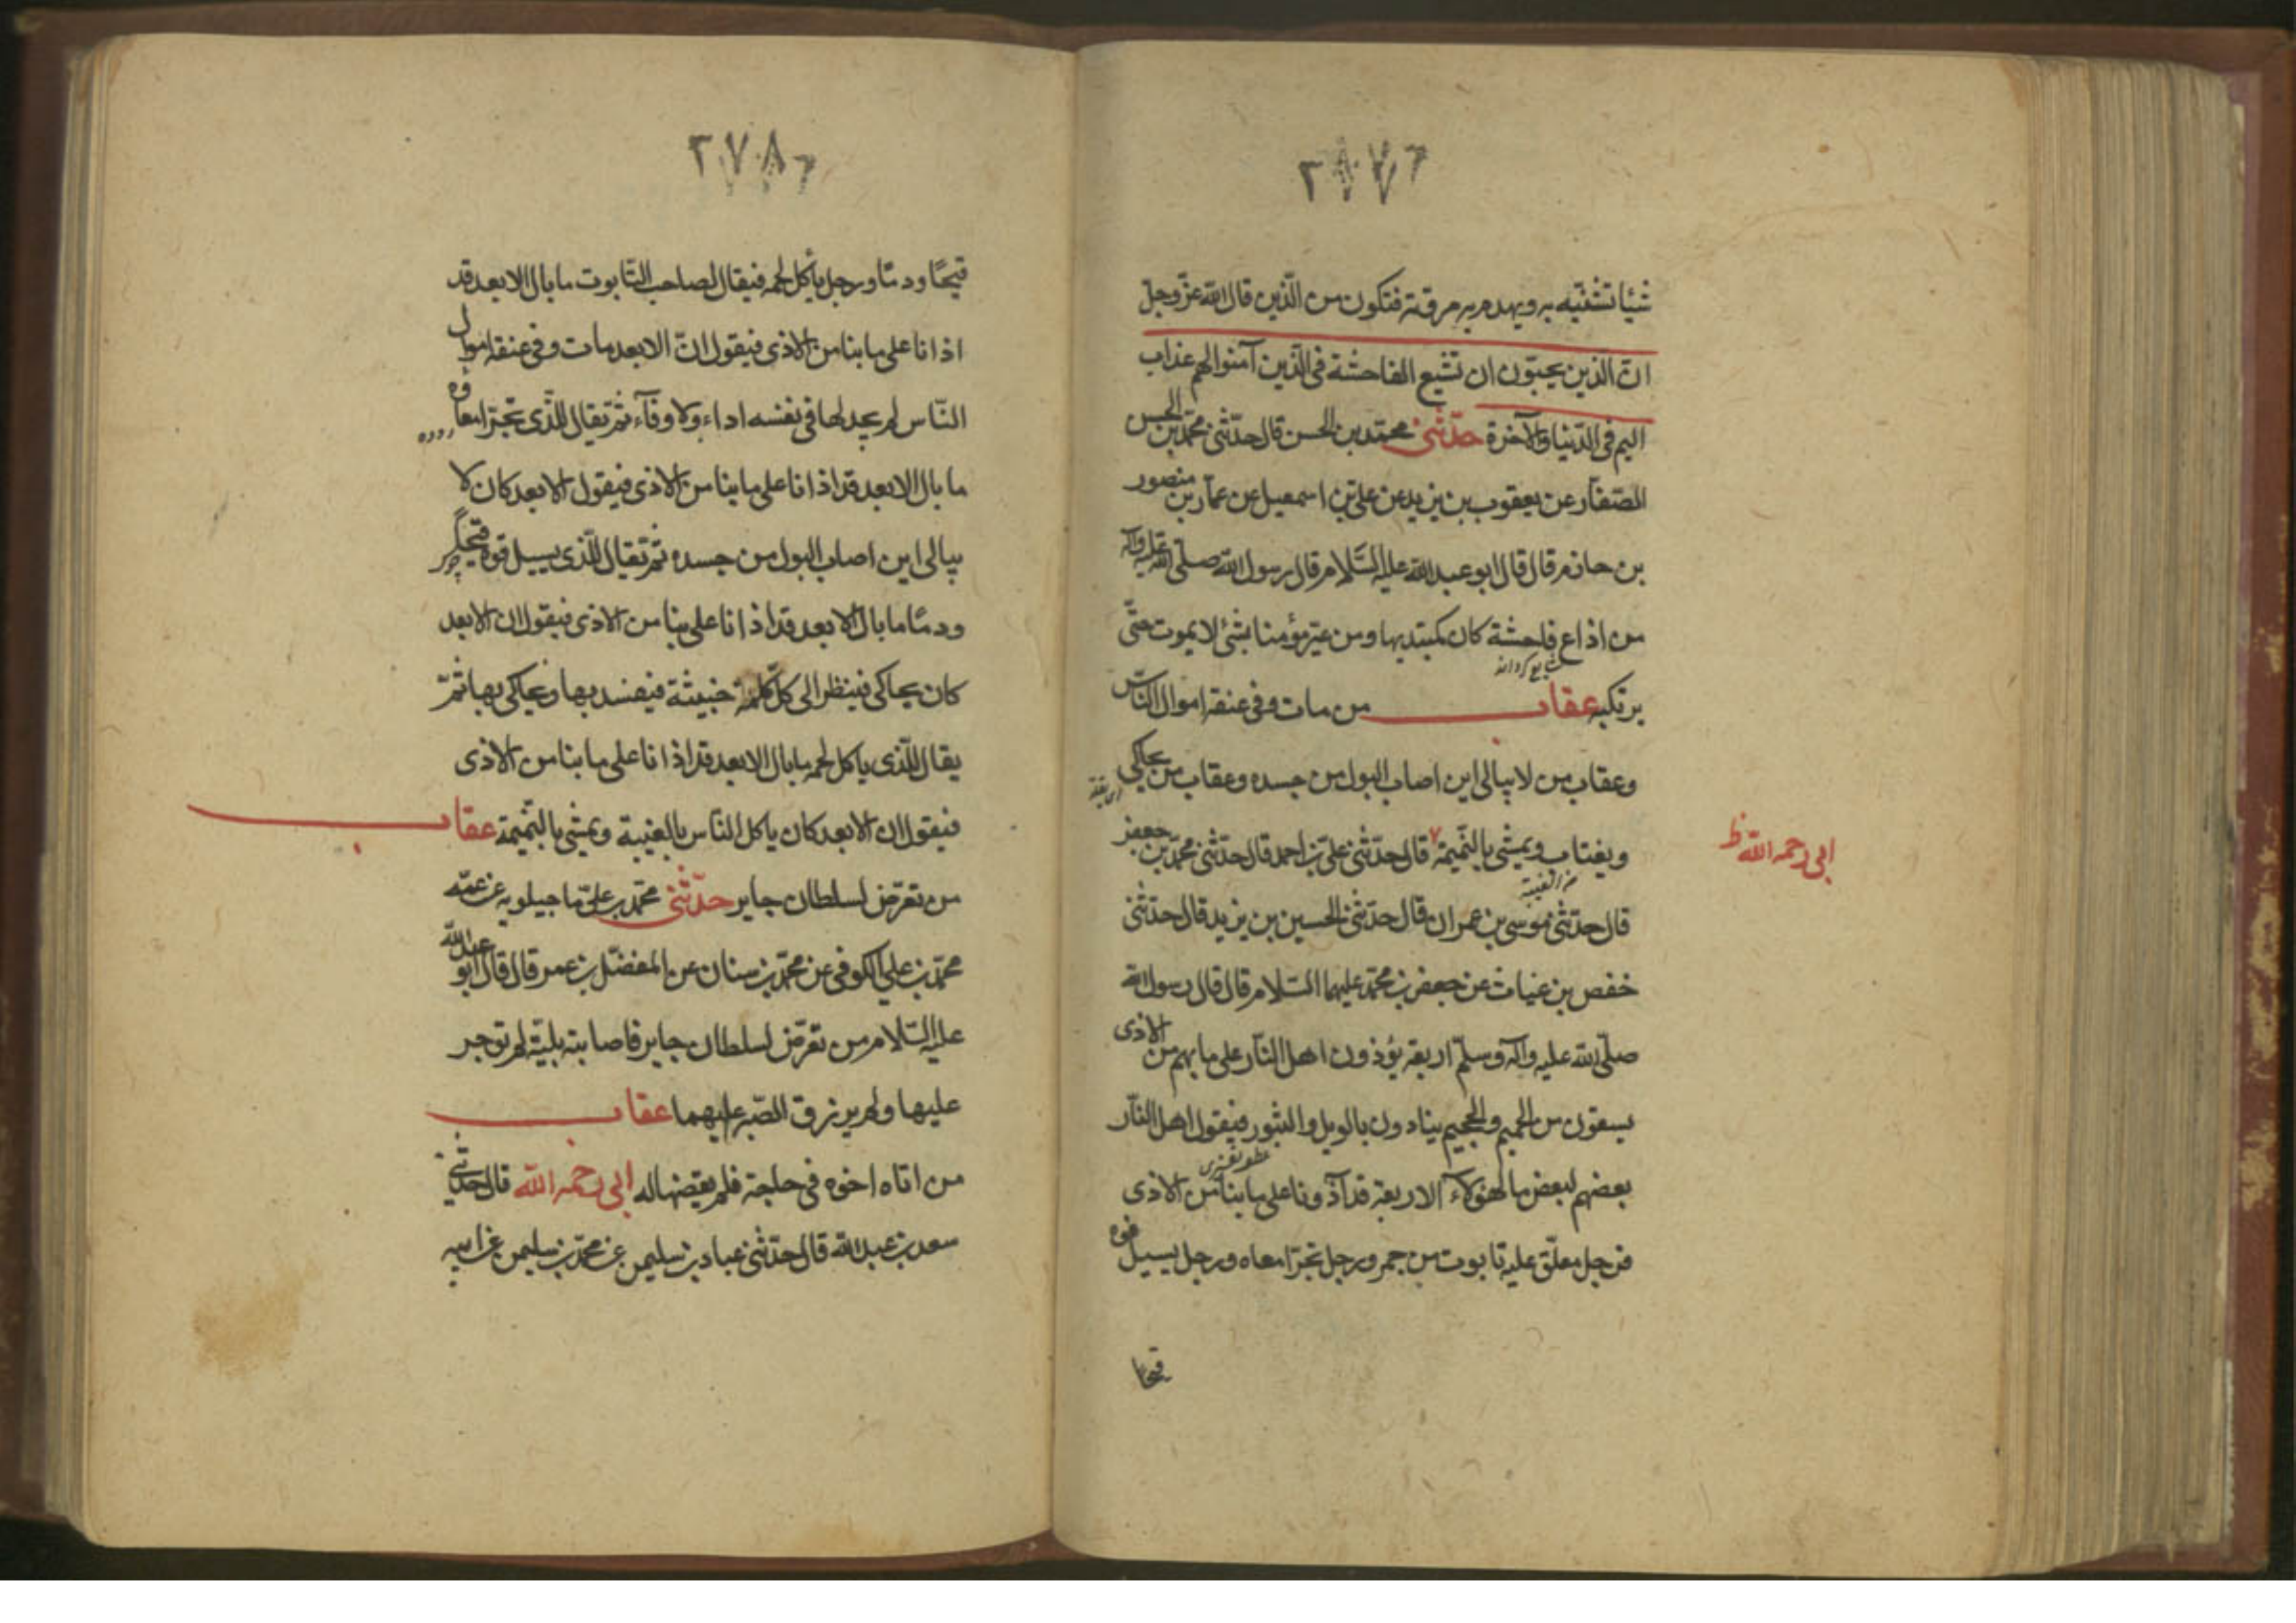 ٢٧٧
شيئا تشينه به ويهدم به مروته فتكون من الّذين قال الله عزّ وجلّ
انّ الذين يحبّون ان تشيع الفاحشة في الّذين آمنوا لهم عذاب
اليم في الدّنيا والآخرة حدّثنى محمّد بن الحسن قال حدّثنى محمّد بن الحسن
الصّفّار عن يعقوب بن يزيد عن علىّ بن اسمعيل عن عمّار بن منصور
بن حازم قال قال ابو عبد الله عليه السّلام قال رسول الله صلّى الله عليه وآله
من اذاع فاحشة كان كمبتديها ومن عيّر مؤمنا بشئ لا يموت حتّى
يرتكبه عقاب من مات وفى عنقه اموال النّاس
وعقاب من لا يبالى اين اصاب البول من جسده وعقاب من يحاكي
ويغتاب ويمشى بالنّميمة قال حدّثنى علىّ بن احمد قال حدّثنى محمّد بن جعفر
من الغيبة
ابى رحمه الله ظ
قال حدّثنى موسى بن عمران قال حدّثنى الحسين بن يزيد قال حدّثنى
خفص بن غياث عن جعفر بن محمّد عليهما السّلام قال قال رسول الله
صلّى الله عليه وآله وسلّم اربعة يؤذون اهل النّار على ما بهم من الاذى
يسقون من الحميم والجحيم ينادون بالويل والثبور فيقول اهل النّار
بعضهم لبعض ما لهؤلاء الاربعة قد آذونا على ما بنا من الاذى
فرجل معلّق عليه تابوت من جمر ورجل تجرّ امعاه ورجل يسيل فوه
قيحا
٢٧٨
قيحًا ودمًا ورجل يأكل لحمه فيقال لصاحب التّابوت ما بال الابعد قد
اذانا على ما بنا من الاذى فيقول انّ الابعد مات وفى عنقه اموال
النّاس لم يجد لها فى نفسه اداء ولا وفآء ثمّ يقال للّذى تجرّ امعاؤه
ما بال الابعد قد اذانا على ما بنا من الاذى فيقول الابعد كان لا
يبالى اين اصاب البول من جسده ثمّ يقال للّذى يسيل فوه قيحًا
ودمًا ما بال الابعد قد اذانا على بنا من الاذى فيقول ان الابعد
كان يحاكى فينظر الى كلّ كلمة خبيثة فيفسد بها ويحاكى بها ثمّ
يقال للّذى ياكل لحمه ما بال الابعد قد اذانا على ما بنا من الاذى
فيقول ان الابعد كان ياكل النّاس بالغيبة ويمشى بالنّميمة عقاب
من تعرّض لسلطان جاير حدّثنى محمّد بن علىّ ماجيلويه عن عمّه
محمّد بن علي الكوفى عن محمّد بن سنان عن المفضّل بن عمر قال قال ابو عبد الله
عليه السّلام من تعرّض لسلطان جاير فاصابته بليّة لم توجر
عليها ولم يرزق الصّبر عليهما عقاب
من اتاه اخوه فى حاجة فلم يقضها له ابى رحمه الله قال حدّثنى
سعد بن عبد الله قال حدّثنى عباد بن سليمن عن محمّد بن سليمن عن ابيه